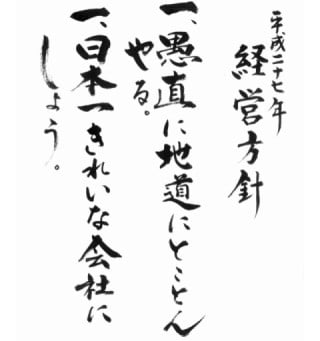 平成二十七年
経営方針
一、愚直に地道にとことん
やる。
一、日本一きれいな会社に
しょう。